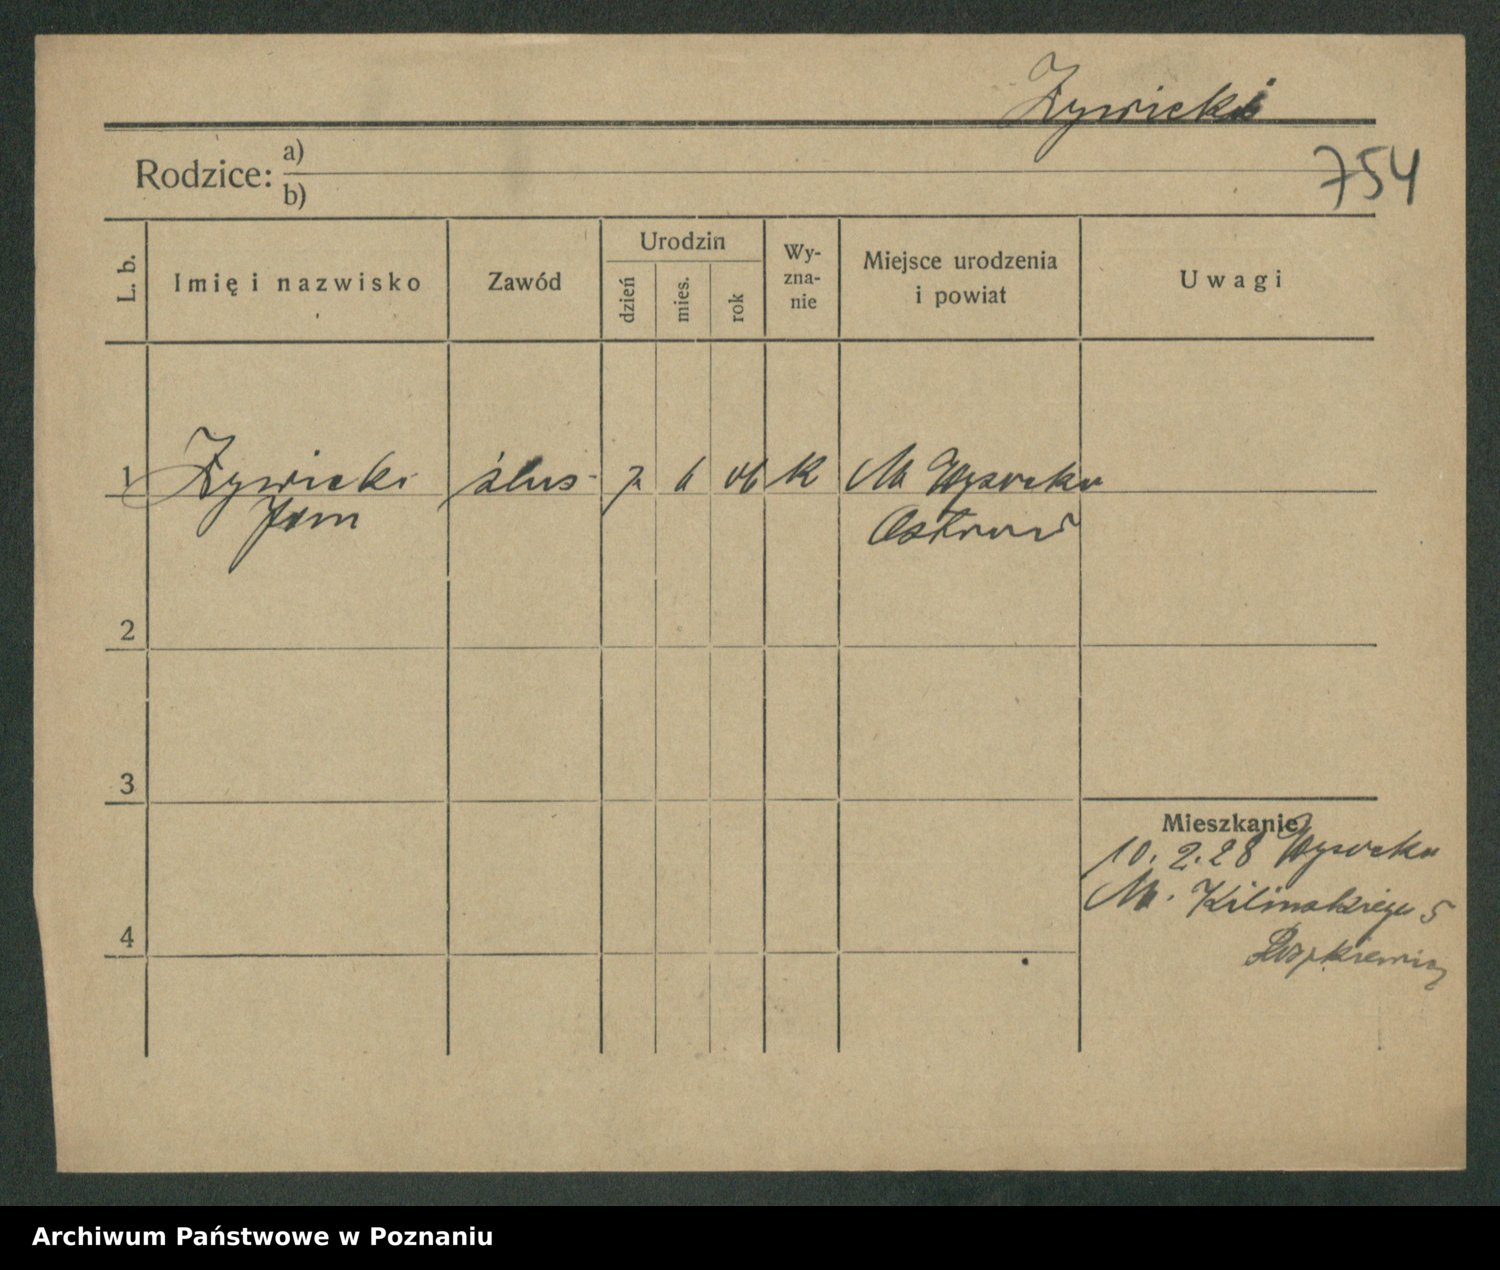 Żywicki
754
Rodzice: a)
b)
L. b.
Imię i nazwisko
Zawód
Urodzin
dzień
mies.
rok
Wy-
zna-
nie
Miejsce urodzenia
i powiat
Uwagi
1 Żywicki ślus- 7 6 06 K M Wysocko
Jan Ostrów
2
3
Mieszkanie
10. 2. 28 Wysocko
M. Kilinskiego 5
4
Archiwum Państwowe w Poznaniu